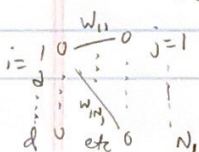 W11
i = 1 0 0 j = 1
2
W1N1
d 0 etc 0 N1